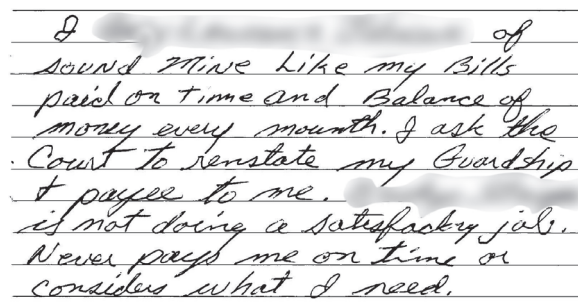 I of
sound Mine Like my Bills
paid on Timme and Balance of
money every mounth. I ask the
Court to renstate my Guardship
& payee to me.
is not doing a satisfactry job.
Never pays me on time or
considers what I need.